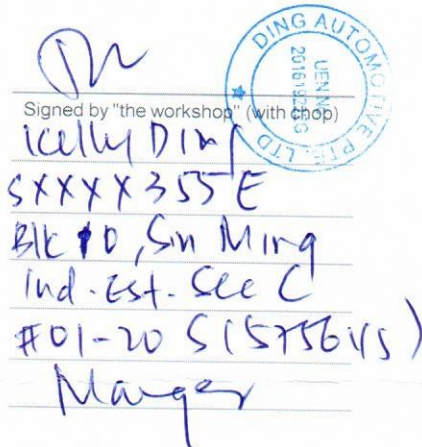 DING AUTOMOTIVE PTE. LTD
UEN No.
Signed by "the workshop" (with chop)
Kelly Ding
SXXXX355E
Blk 10, Sin Ming
Ind. Est. Sec C
#01-20 S(575645)
Manger